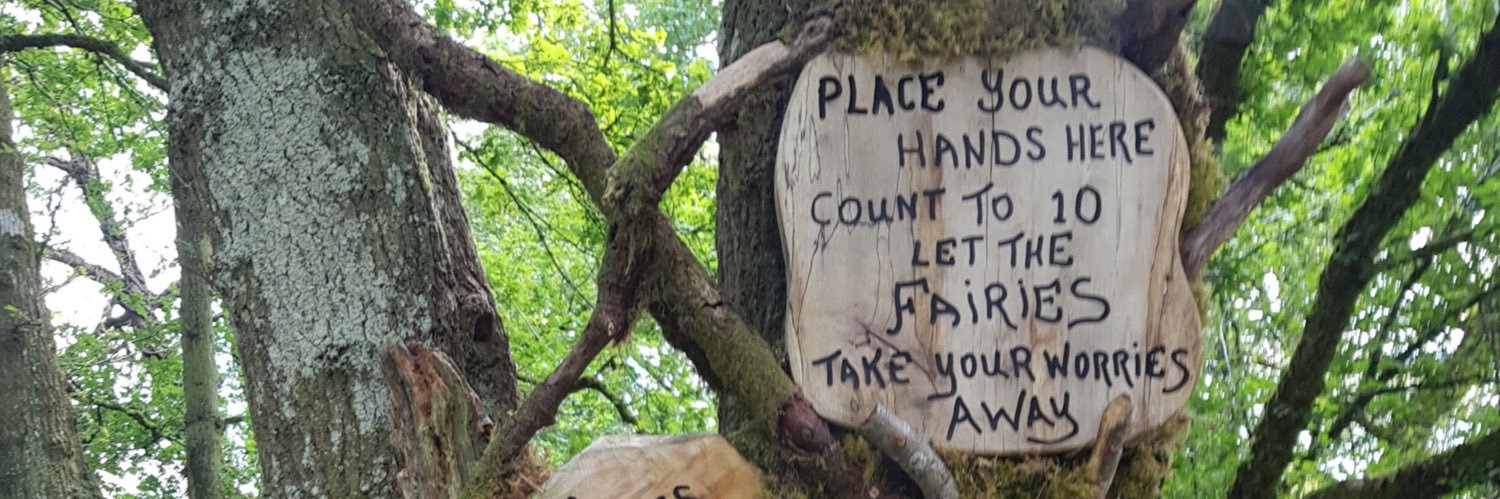 PLACE YOUR
HANDS HERE
COUNT TO 10
LET THE
FAIRIES
TAKE YOUR WORRIES
AWAY